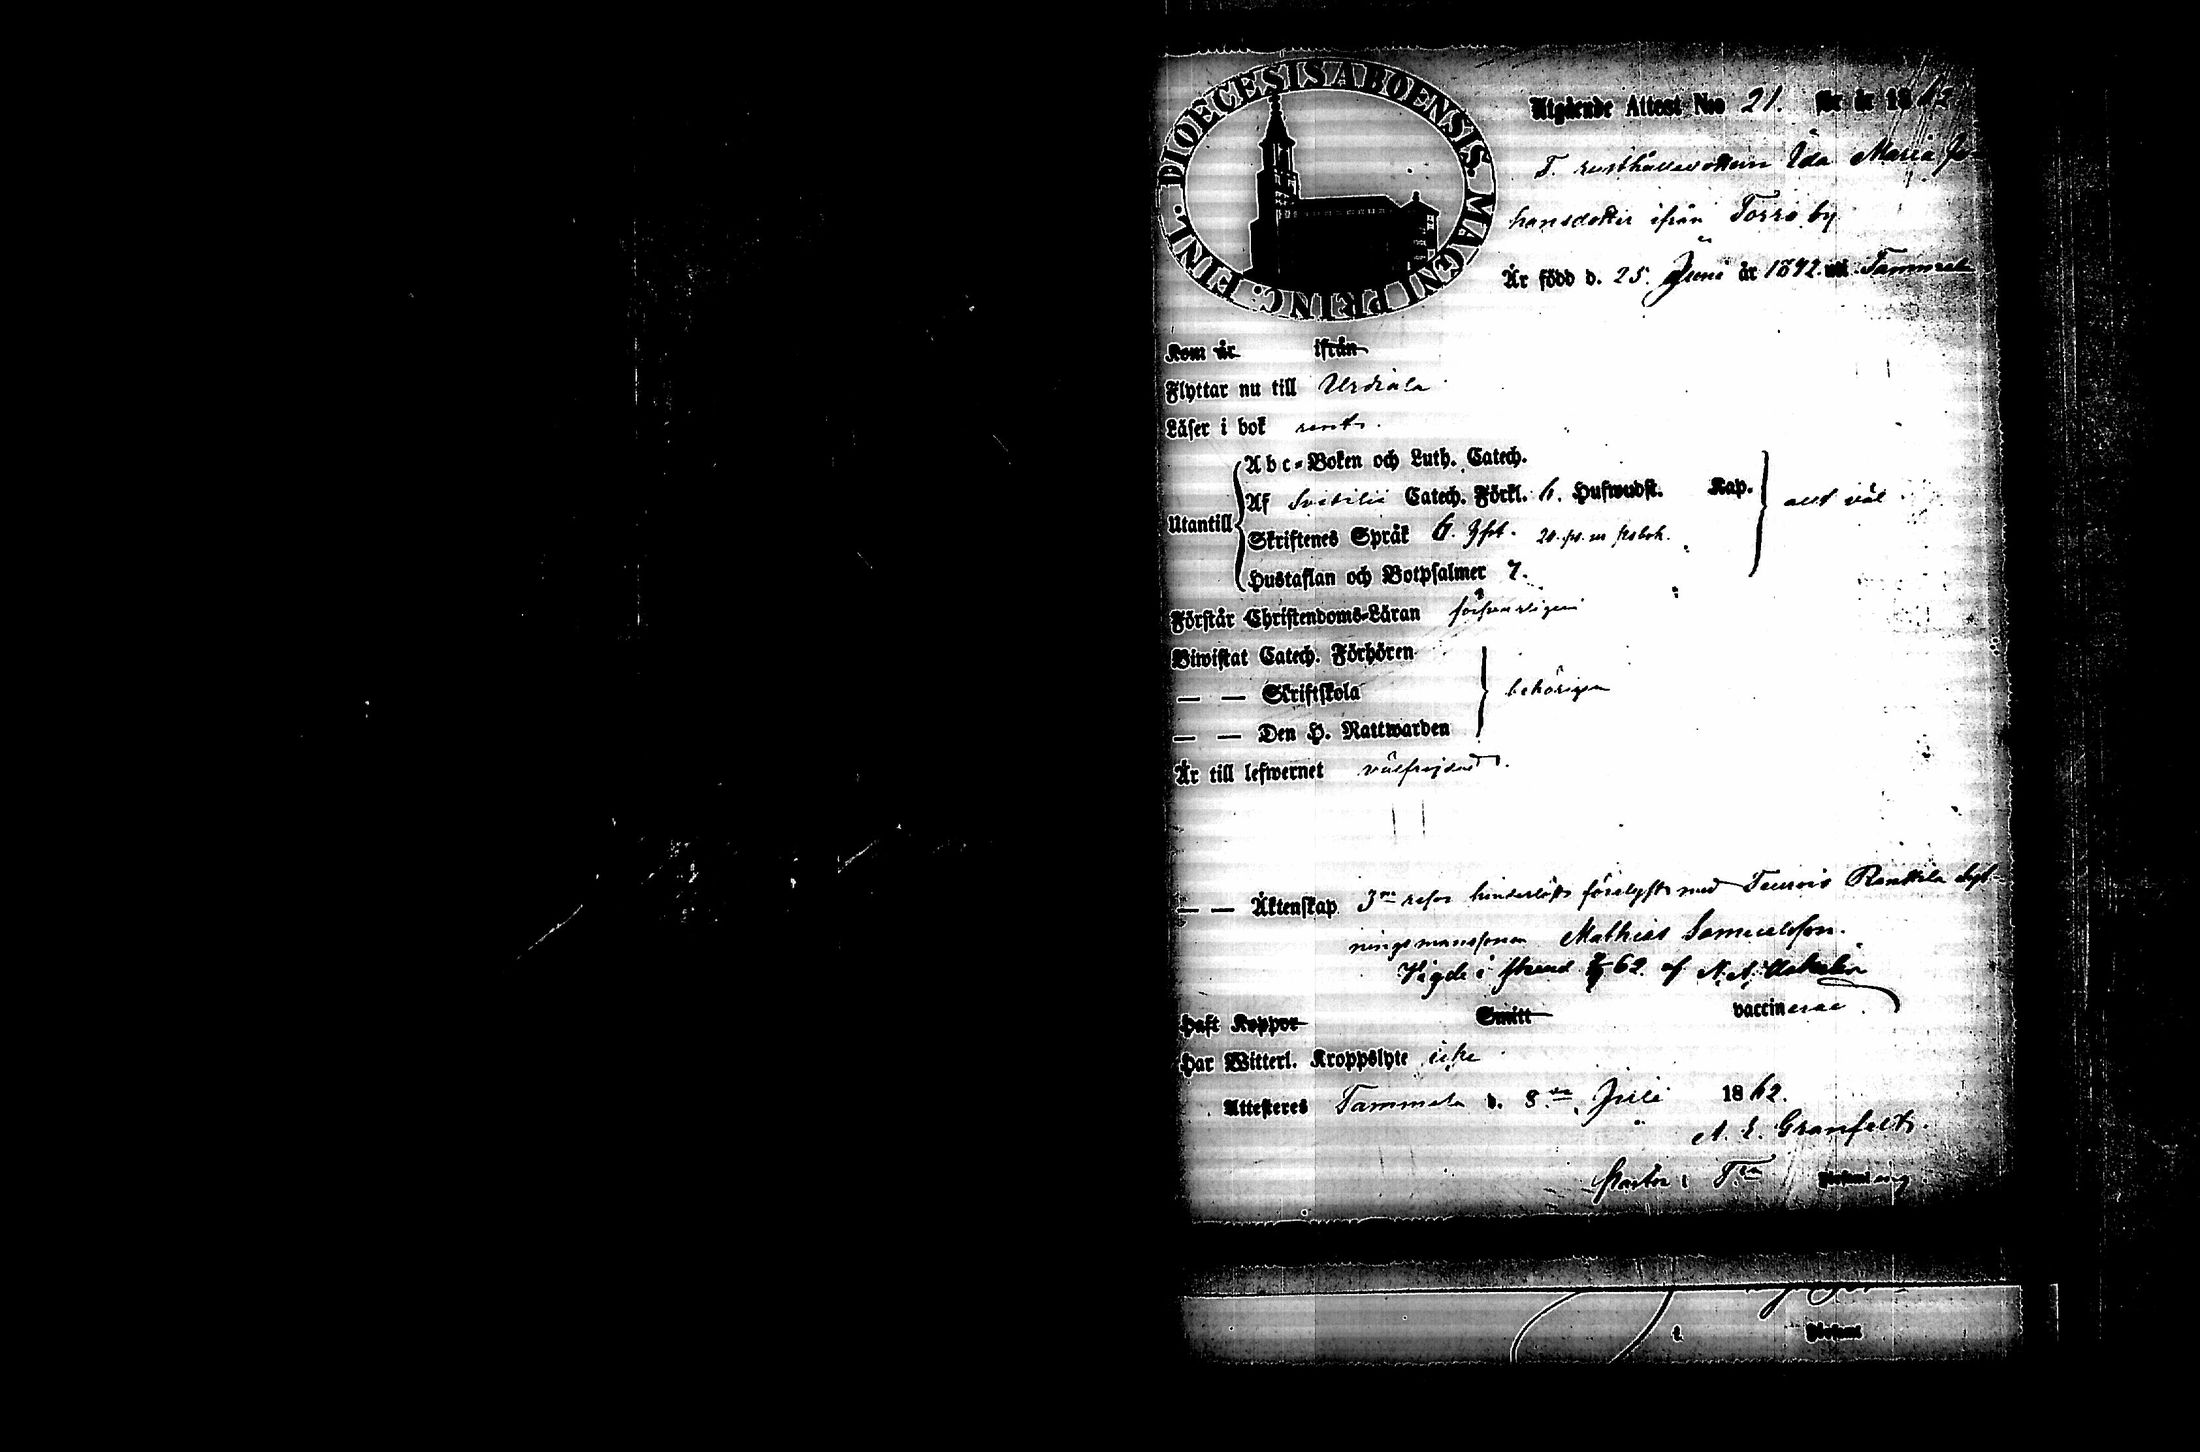 DIOECESIS ABOENSIS. MAGNI PRINC: FINL.
Utgående Attest N:o 21. för år 1862
T. rusthållsdottern Ida Maria Jo-
hansdotter ifrån Torro by
Är född d. 25. Juni år 1842 uti Tammela
Kom år ifrån
Flyttar nu till Urdiala
Läser i bok rent.
Utantill
Abc-Boken och Luth. Catech.
Af Svebilii Catech. Förkl. 6. Hufwudst. Kap. allt väl
Skriftenes Språk 6. 20.
Hustaflan och Botpsalmer 7.
Förstår Christendoms-Läran försvarligen
Biwistat Catech. Förhören
— — Skriftskola behörigen
— — Den H. Nattwarden
Är till lefwernet välfrejdad.
— — Äktenskap hinderlöst med Renttilä
Mathias Samuelsson.
Vigde i 62. af
Haft Koppor Smitt vaccinerad
Har Witterl. Kroppslyte icke
Attesteres Tammela d. 8:de Juli 1862.
A. E. Granfelt.
Pastor i